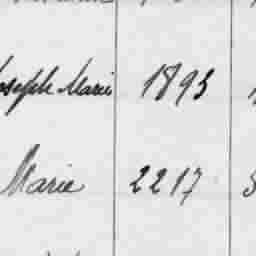 Joseph Marie 1893
Marie 2217